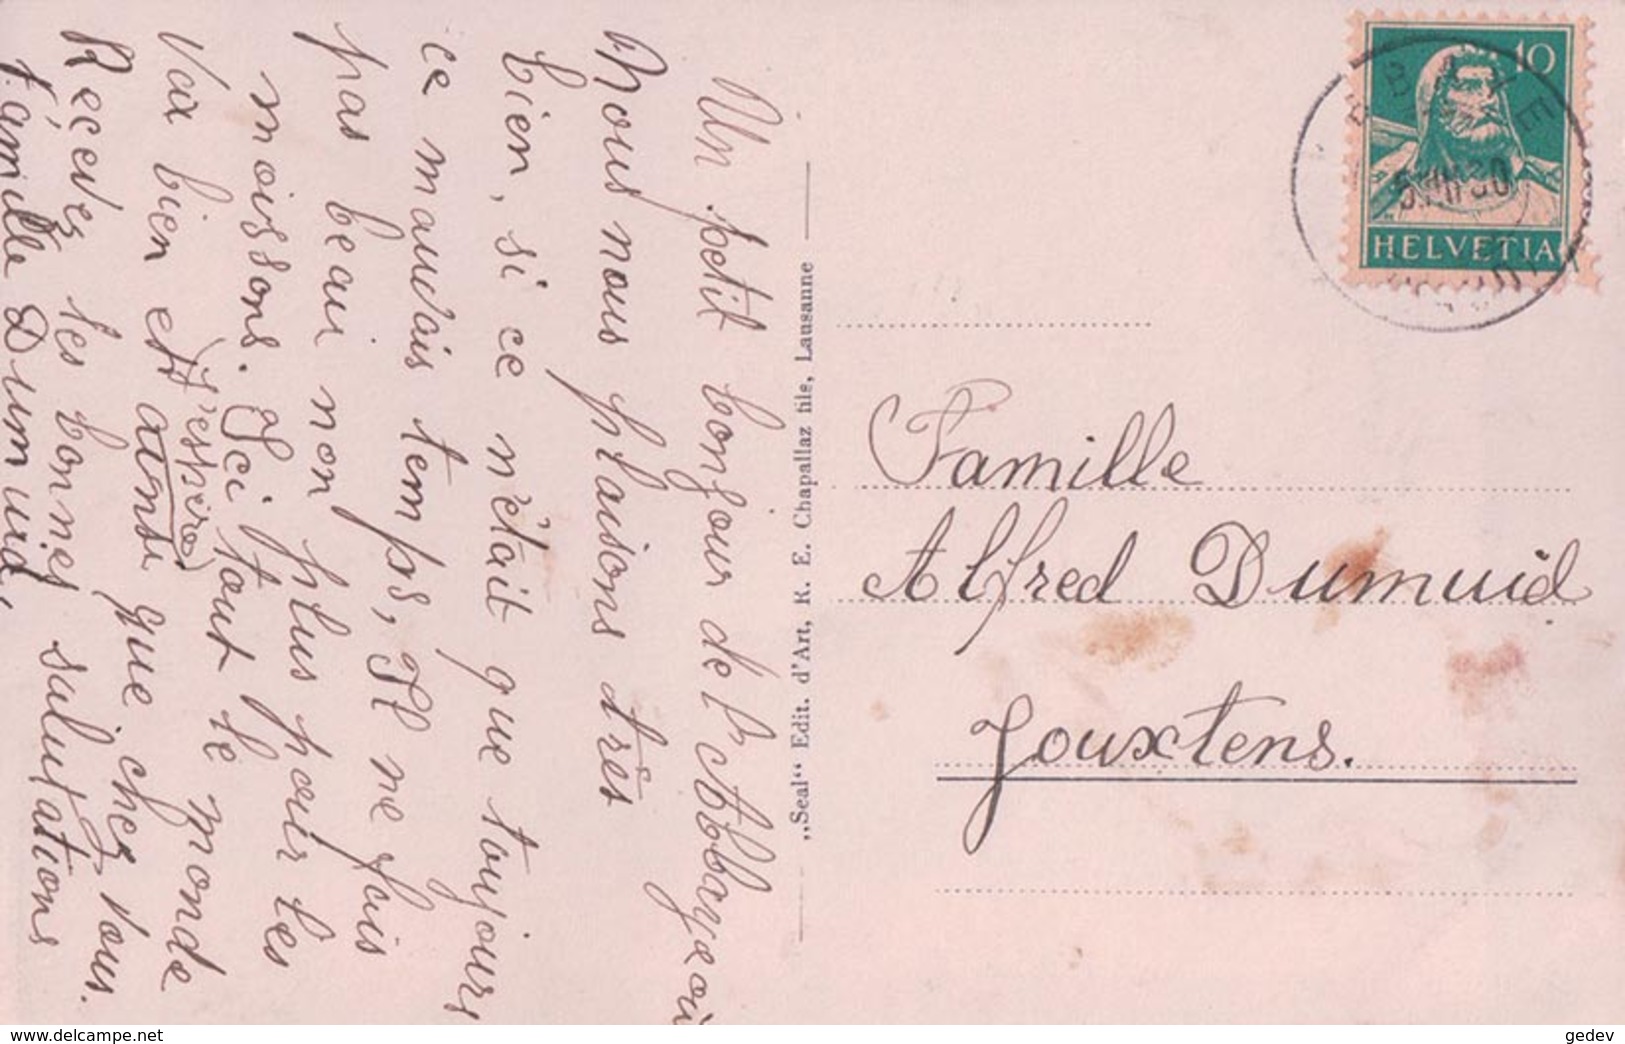 Un petit bonjour de l'Abbaye où
Nous nous plaisons très
bien, si ce n'était que toujours
ce mauvais temps, Il ne fais
pas beau non plus pour les
moissons. Ici tout le monde
Vax bien et ainsi que chez vous.
(J'espère)
Recevez les bonnes salutations
famille Dumuid.
„Seal“ Edit. d'Art, R. E. Chapallaz fils, Lausanne
10
HELVETIA
Famille
Alfred Dumuid
Jouxtens.
www.delcampe.net
gedev